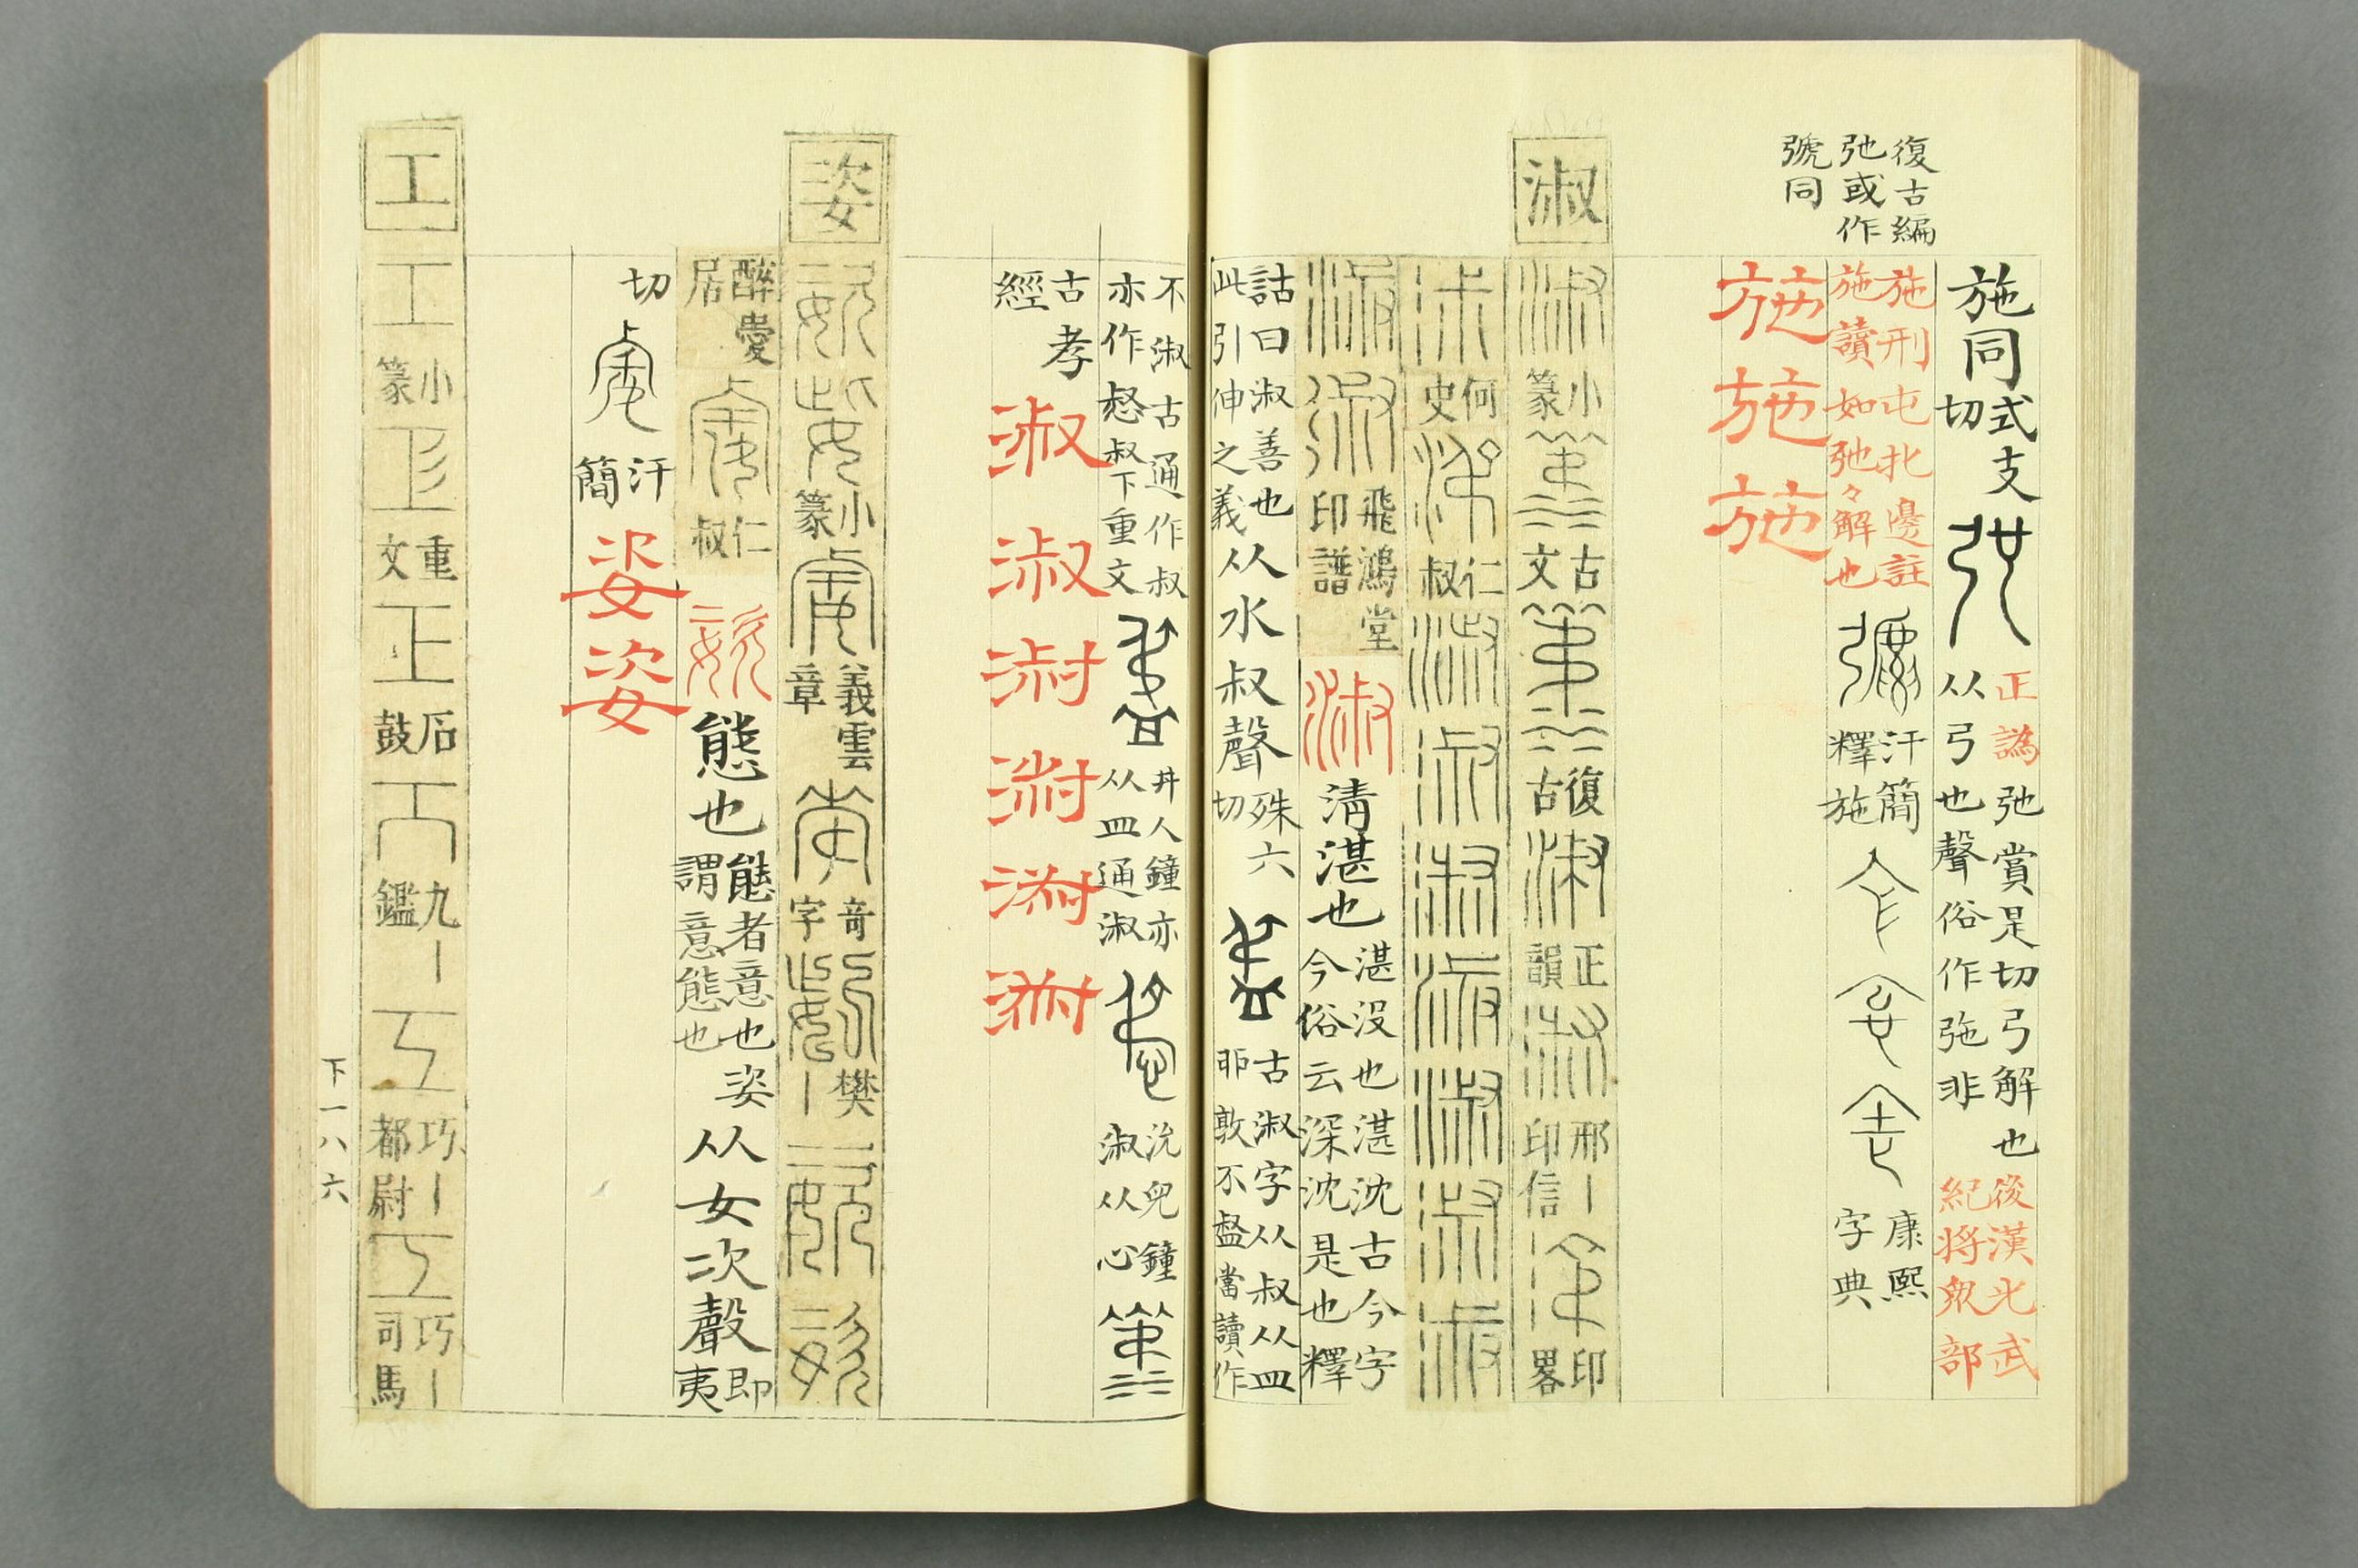 復古編
弛或作
號同
施同
式支
切
正譌
弛賞是切弓解也
从弓也聲俗作弛非
後漢光武
紀將眾部
施刑屯北邊註
施讀如弛々解也
汗簡
釋施
康熙
字典
施施施
淑
淑
小
篆
古
文
復
古
正
韻
邢丨
印信
印
畧
何
史
仁
叔
飛鴻堂
印譜
淑
清湛也
湛没也湛沈古今字
今俗云深沈是也釋
詁曰淑善也
此引伸之義
从水叔聲
殊六
切
古淑字从叔从皿
耶敦不盄當讀作
不淑古通作叔
亦作惄叔下重文
井人鐘亦
从皿通淑
沇兒鐘
淑从心
古孝
經
淑淑
姿
小
篆
義雲
章
奇
字
樊
丨
醉愛
居
仁
叔
態也
態者意也姿
謂意態也
从女次聲
即
夷
切
汗
簡
姿姿
工
工
小
篆
重
文
石
鼓
九丨
鑑
巧丨
都尉
巧丨
司馬
下一八六